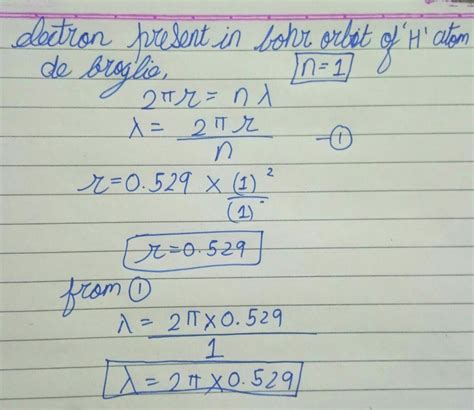 electron present in bohr orbit of 'H' atom
de broglie, n=1
2πr = nλ
λ = 2πr / n — ①
r = 0.529 × (1)² / (1)
r = 0.529
from ①
λ = 2π×0.529 / 1
λ = 2π×0.529